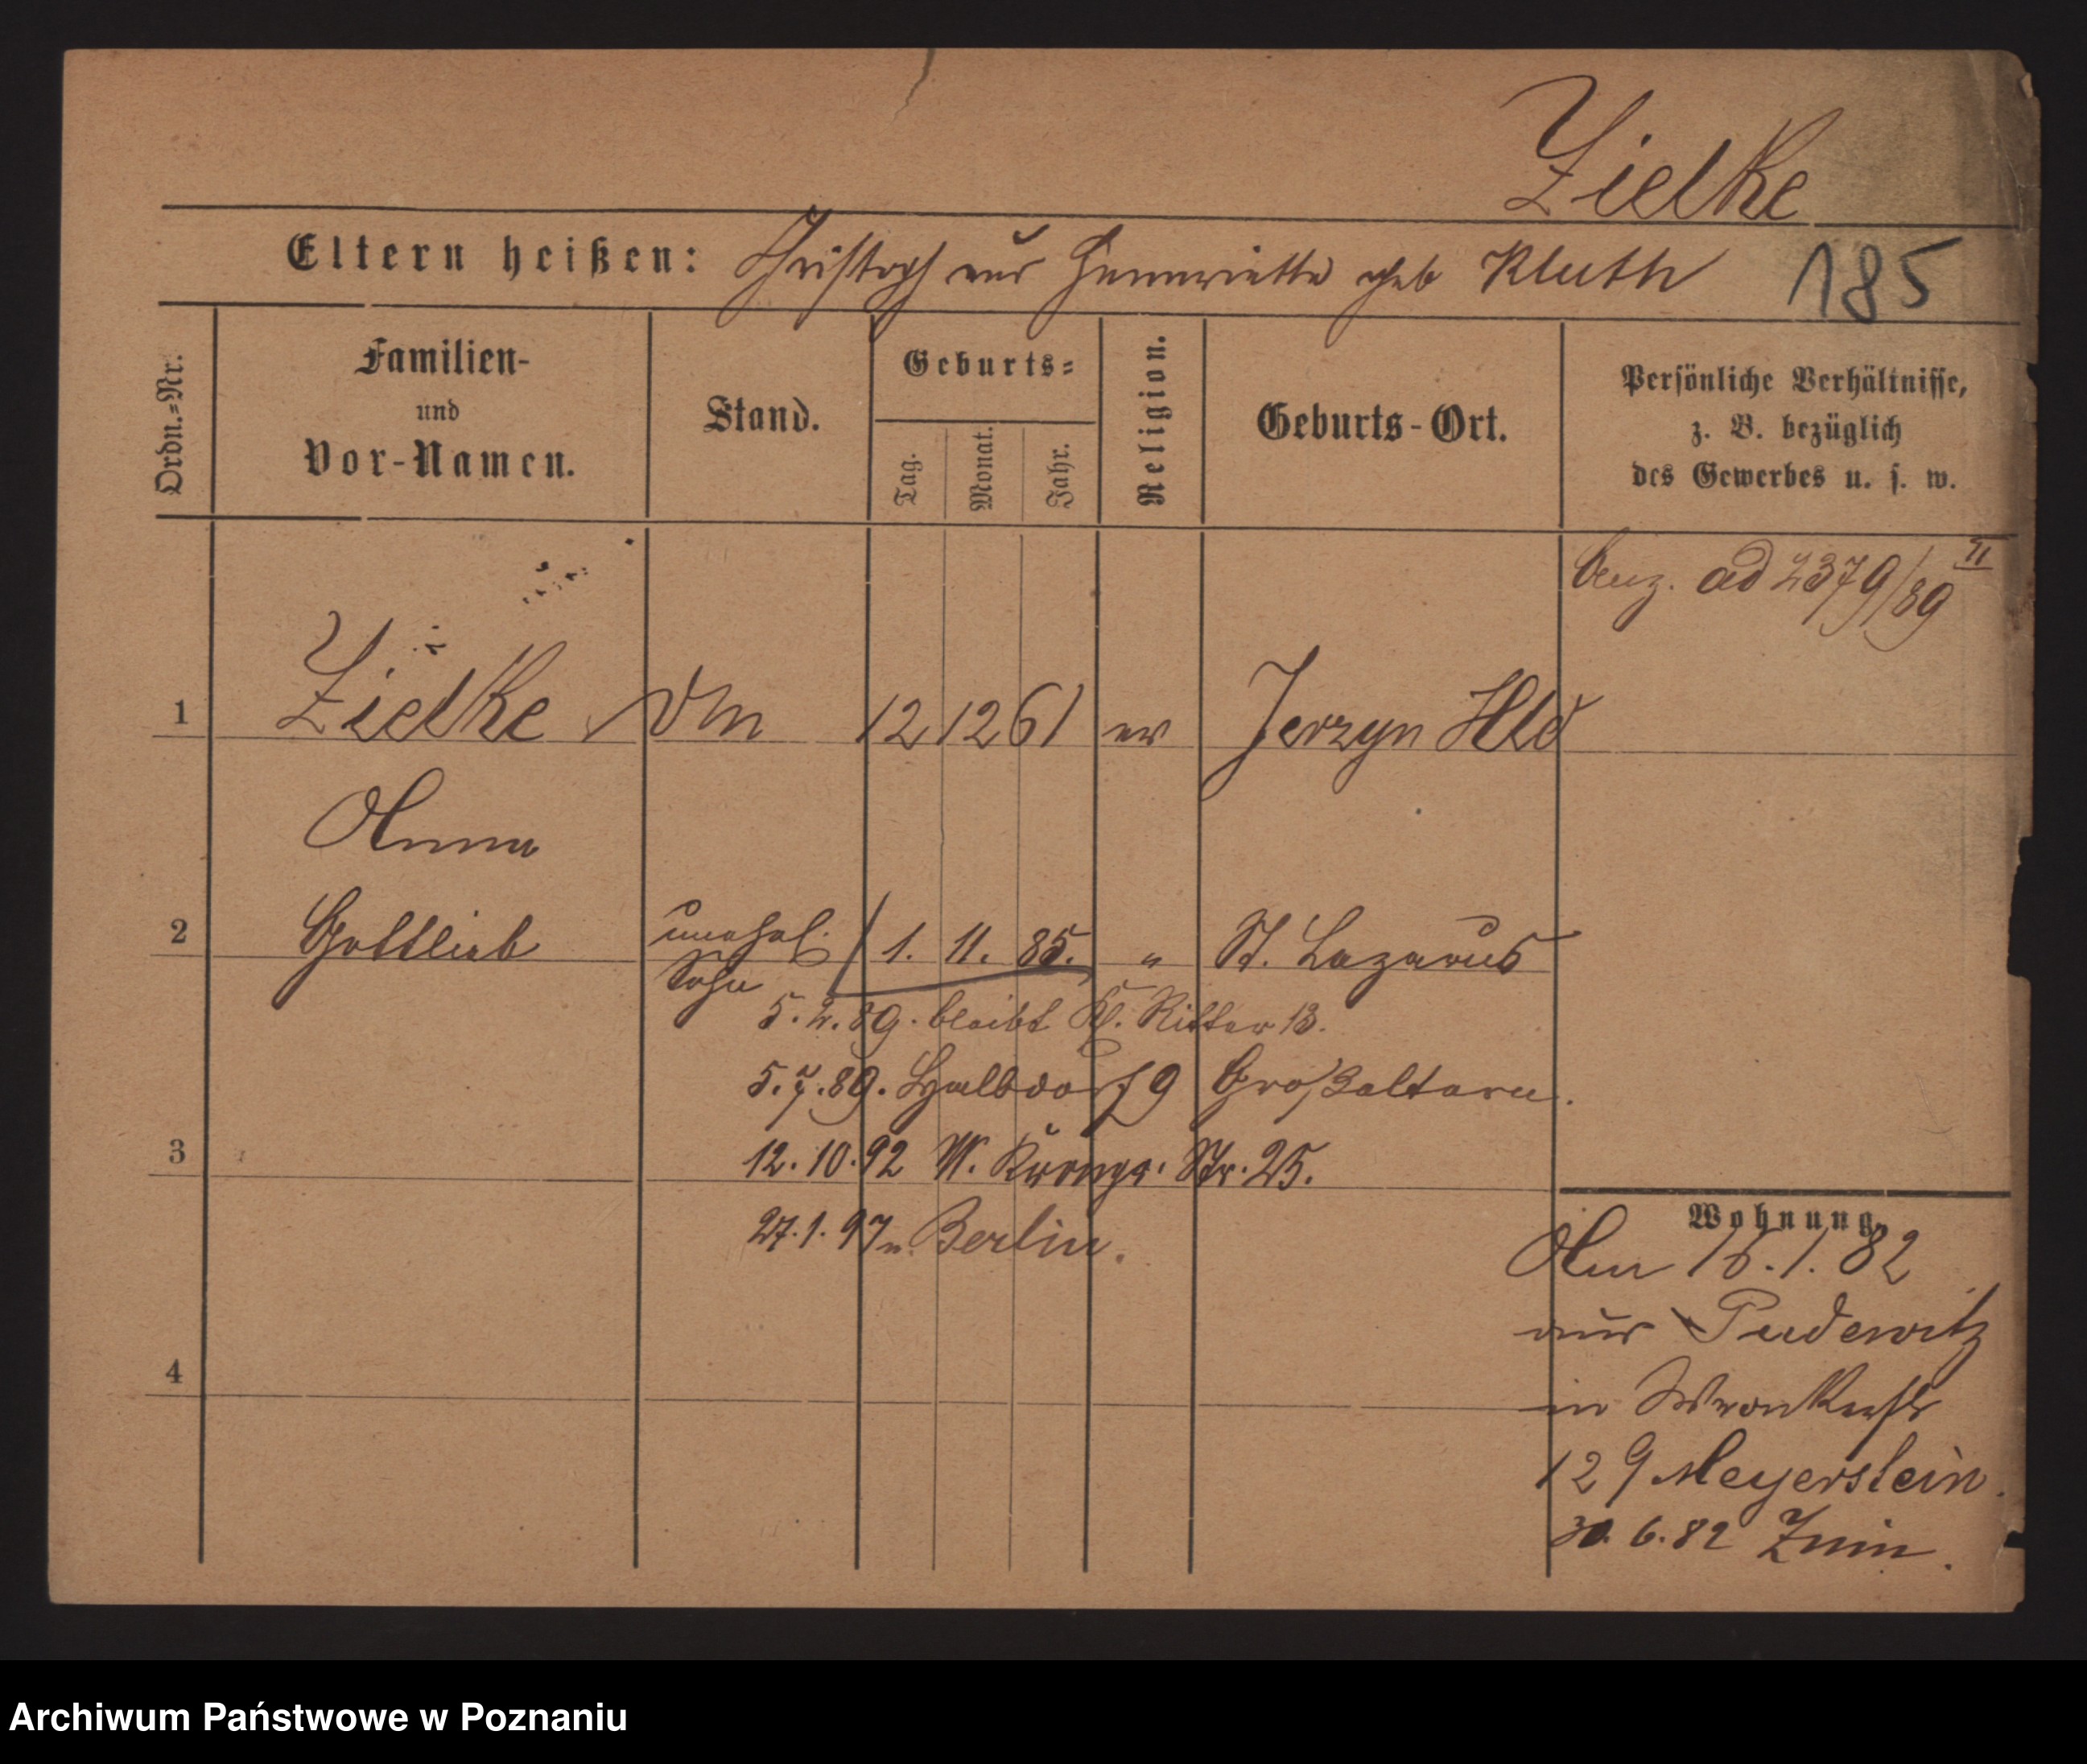 Zielke
Eltern heißen: Christoph und Hennriette geb Kluth 185
Ordn.=Nr.
Familien-
und
Vor-Namen.
Stand.
Geburts=
Tag.
Monat.
Jahr.
Religion.
Geburts-Ort.
Persönliche Verhältnisse,
z. B. bezüglich
des Gewerbes u. s. w.
ad 2379/89 II
1 Zielke 12 12 61 ev Jerzyn Hld
Anna
2 Gottlieb unehel. 1. 11. 85. " St. Lazarus
Sohn
5.2.89. bleibt Kl. Ritter 13.
5.7.89. Halbdorf 9
3 12.10.92 Str. 25.
27.1.97 n. Berlin.
Wohnung.
Am 16.1.82
aus Pudewitz
4
in Wronkerstr
129 Meyerstein.
30.6.82 Znin.
Archiwum Państwowe w Poznaniu